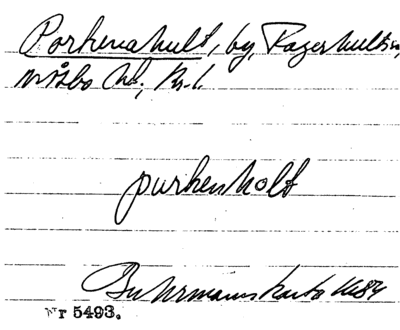 Porkenahult, by, Fagerhults sn,
N. Åsbo hd, Kr. l.
purkenholt
Buhrmans karta 1684
Nr 5493.